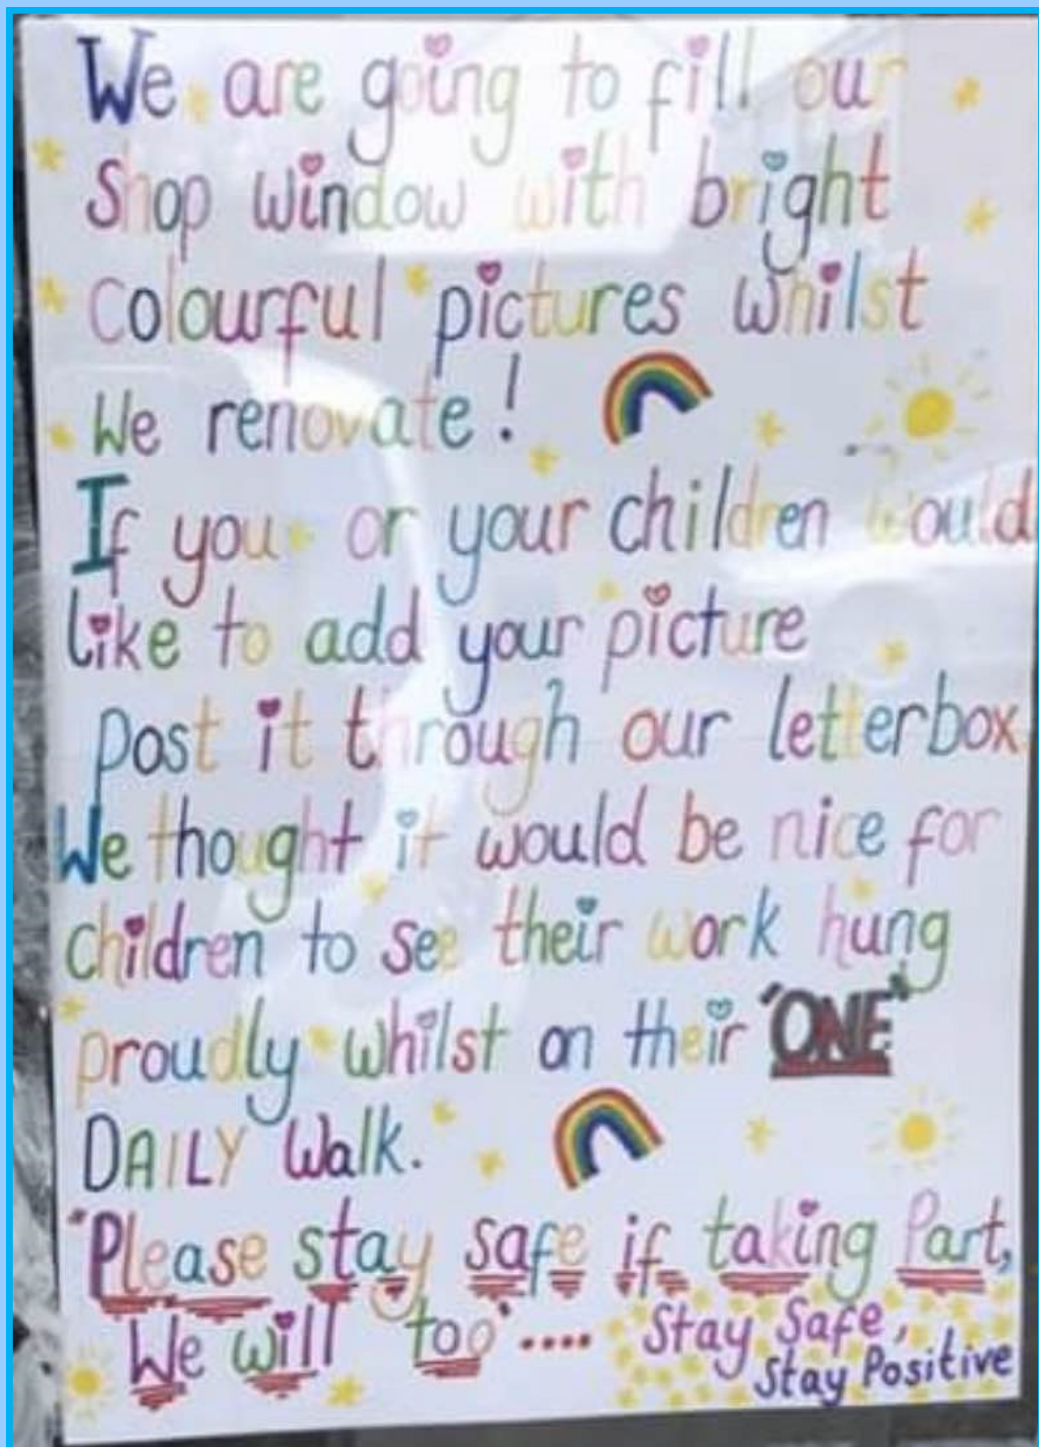 We are going to fill our
Shop window with bright
Colourful pictures whilst
We renovate!
If you or your children would
like to add your picture
Post it through our letterbox
We thought it would be nice for
children to see their work hung
proudly whilst on their "ONE"
DAILY Walk.
"Please stay safe if taking Part,
We will too" ....
Stay Safe,
Stay Positive